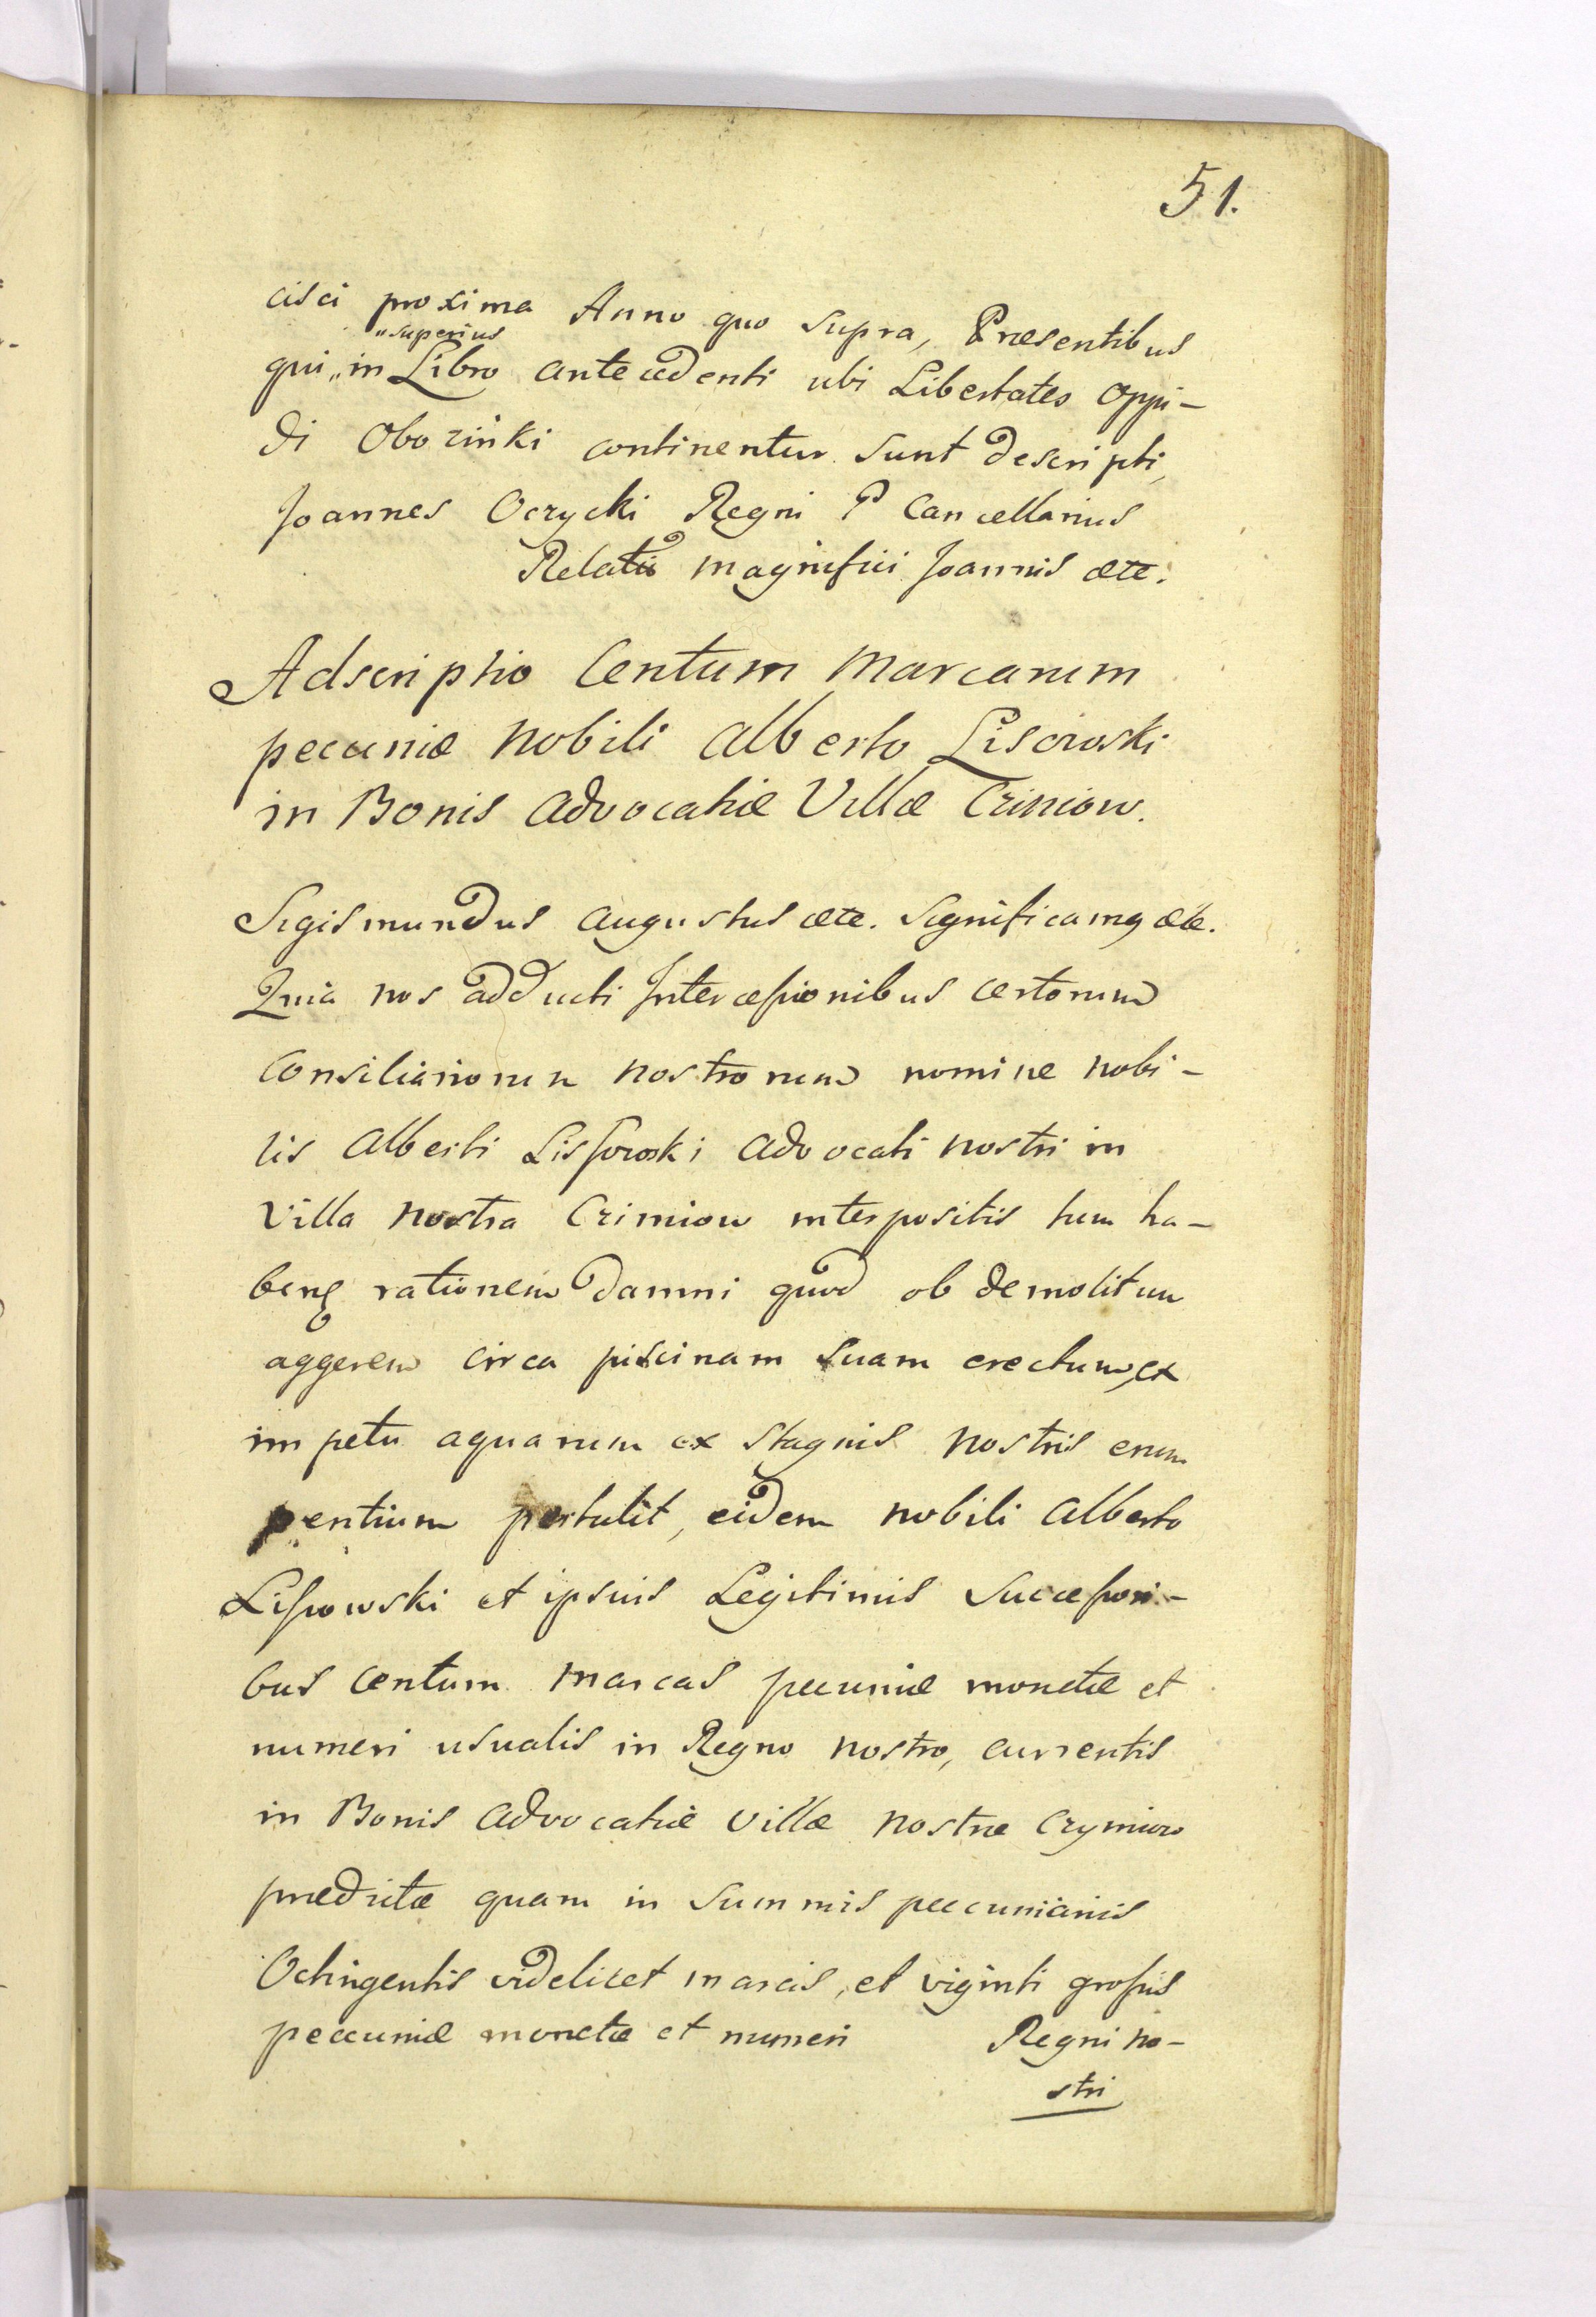 51.
cisci proxima Anno quo supra, Præsentibus
"superius
qui „ in Libro antecedenti ubi Libertates oppi-
di Obozinki continentur sunt descripti,
Joannes Oczycki Regni P Cancellarius
Relatio magnifici Joannis ætc.
Adscriptio Centum Marcarum
pecuniæ Nobili Alberto Liscowski
in Bonis Advocatiæ Villæ Criniow.
Sigismundus Augustus ætc. Significamq ætc.
Quia nos adducti Intercessionibus certorum
Consiliariorum nostrorum nomine nobi-
lis Alberti Lissowski Advocati nostri in
Villa nostra Crimiow interpositis tum ha-
benς rationem damni quod ob demolitum
aggerem circa piscinam suam erectum, ex
impetu aquarum ex stagnis nostris erum
pentium pertulit, eidem nobili Alberto
Lissowski et ipsius Legitimis Successori-
bus centum marcas pecuniæ monetæ et
numeri usualis in Regno nostro, currentis
in Bonis Advocatiæ villæ nostræ Crymiow
prædictæ quam in summis peccuniariis
Octingentis videlicet marcis, et viginti grossis
peccuniæ monetæ et numeri Regni no-
stri